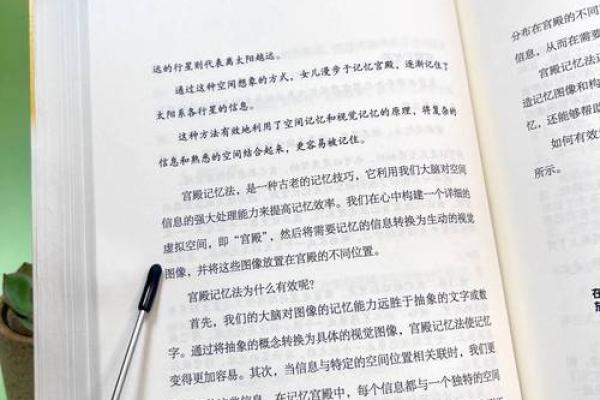 远的行星则代表离太阳越远。
通过这种空间想象的方式，女儿漫步于记忆宫殿，逐渐记住了
太阳系各行星的信息。
这种方法有效地利用了空间记忆和视觉记忆的原理，将复杂的
信息和熟悉的空间结合起来，更容易被记住。
宫殿记忆法，是一种古老的记忆技巧，它利用我们大脑对空间
信息的强大处理能力来提高记忆效率。我们在心中构建一个详细的
虚拟空间，即“宫殿”，然后将需要记忆的信息转换为生动的视觉
图像，并将这些图像放置在宫殿的不同位置。
宫殿记忆法为什么有效呢？
首先，我们的大脑对图像的记忆能力远胜于抽象的文字或数
字。通过将抽象的概念转换为具体的视觉图像，宫殿记忆法使记忆
变得更加容易。其次，当信息与特定的空间位置相关联时，我们更
这些信息。在记忆宫殿中，每个信息都与一个独特的空间
分布在宫殿的不同
信息，从而在需要
宫殿记忆法还
造记忆图像和构
忆，还能够帮助
如何有效
所示。
在